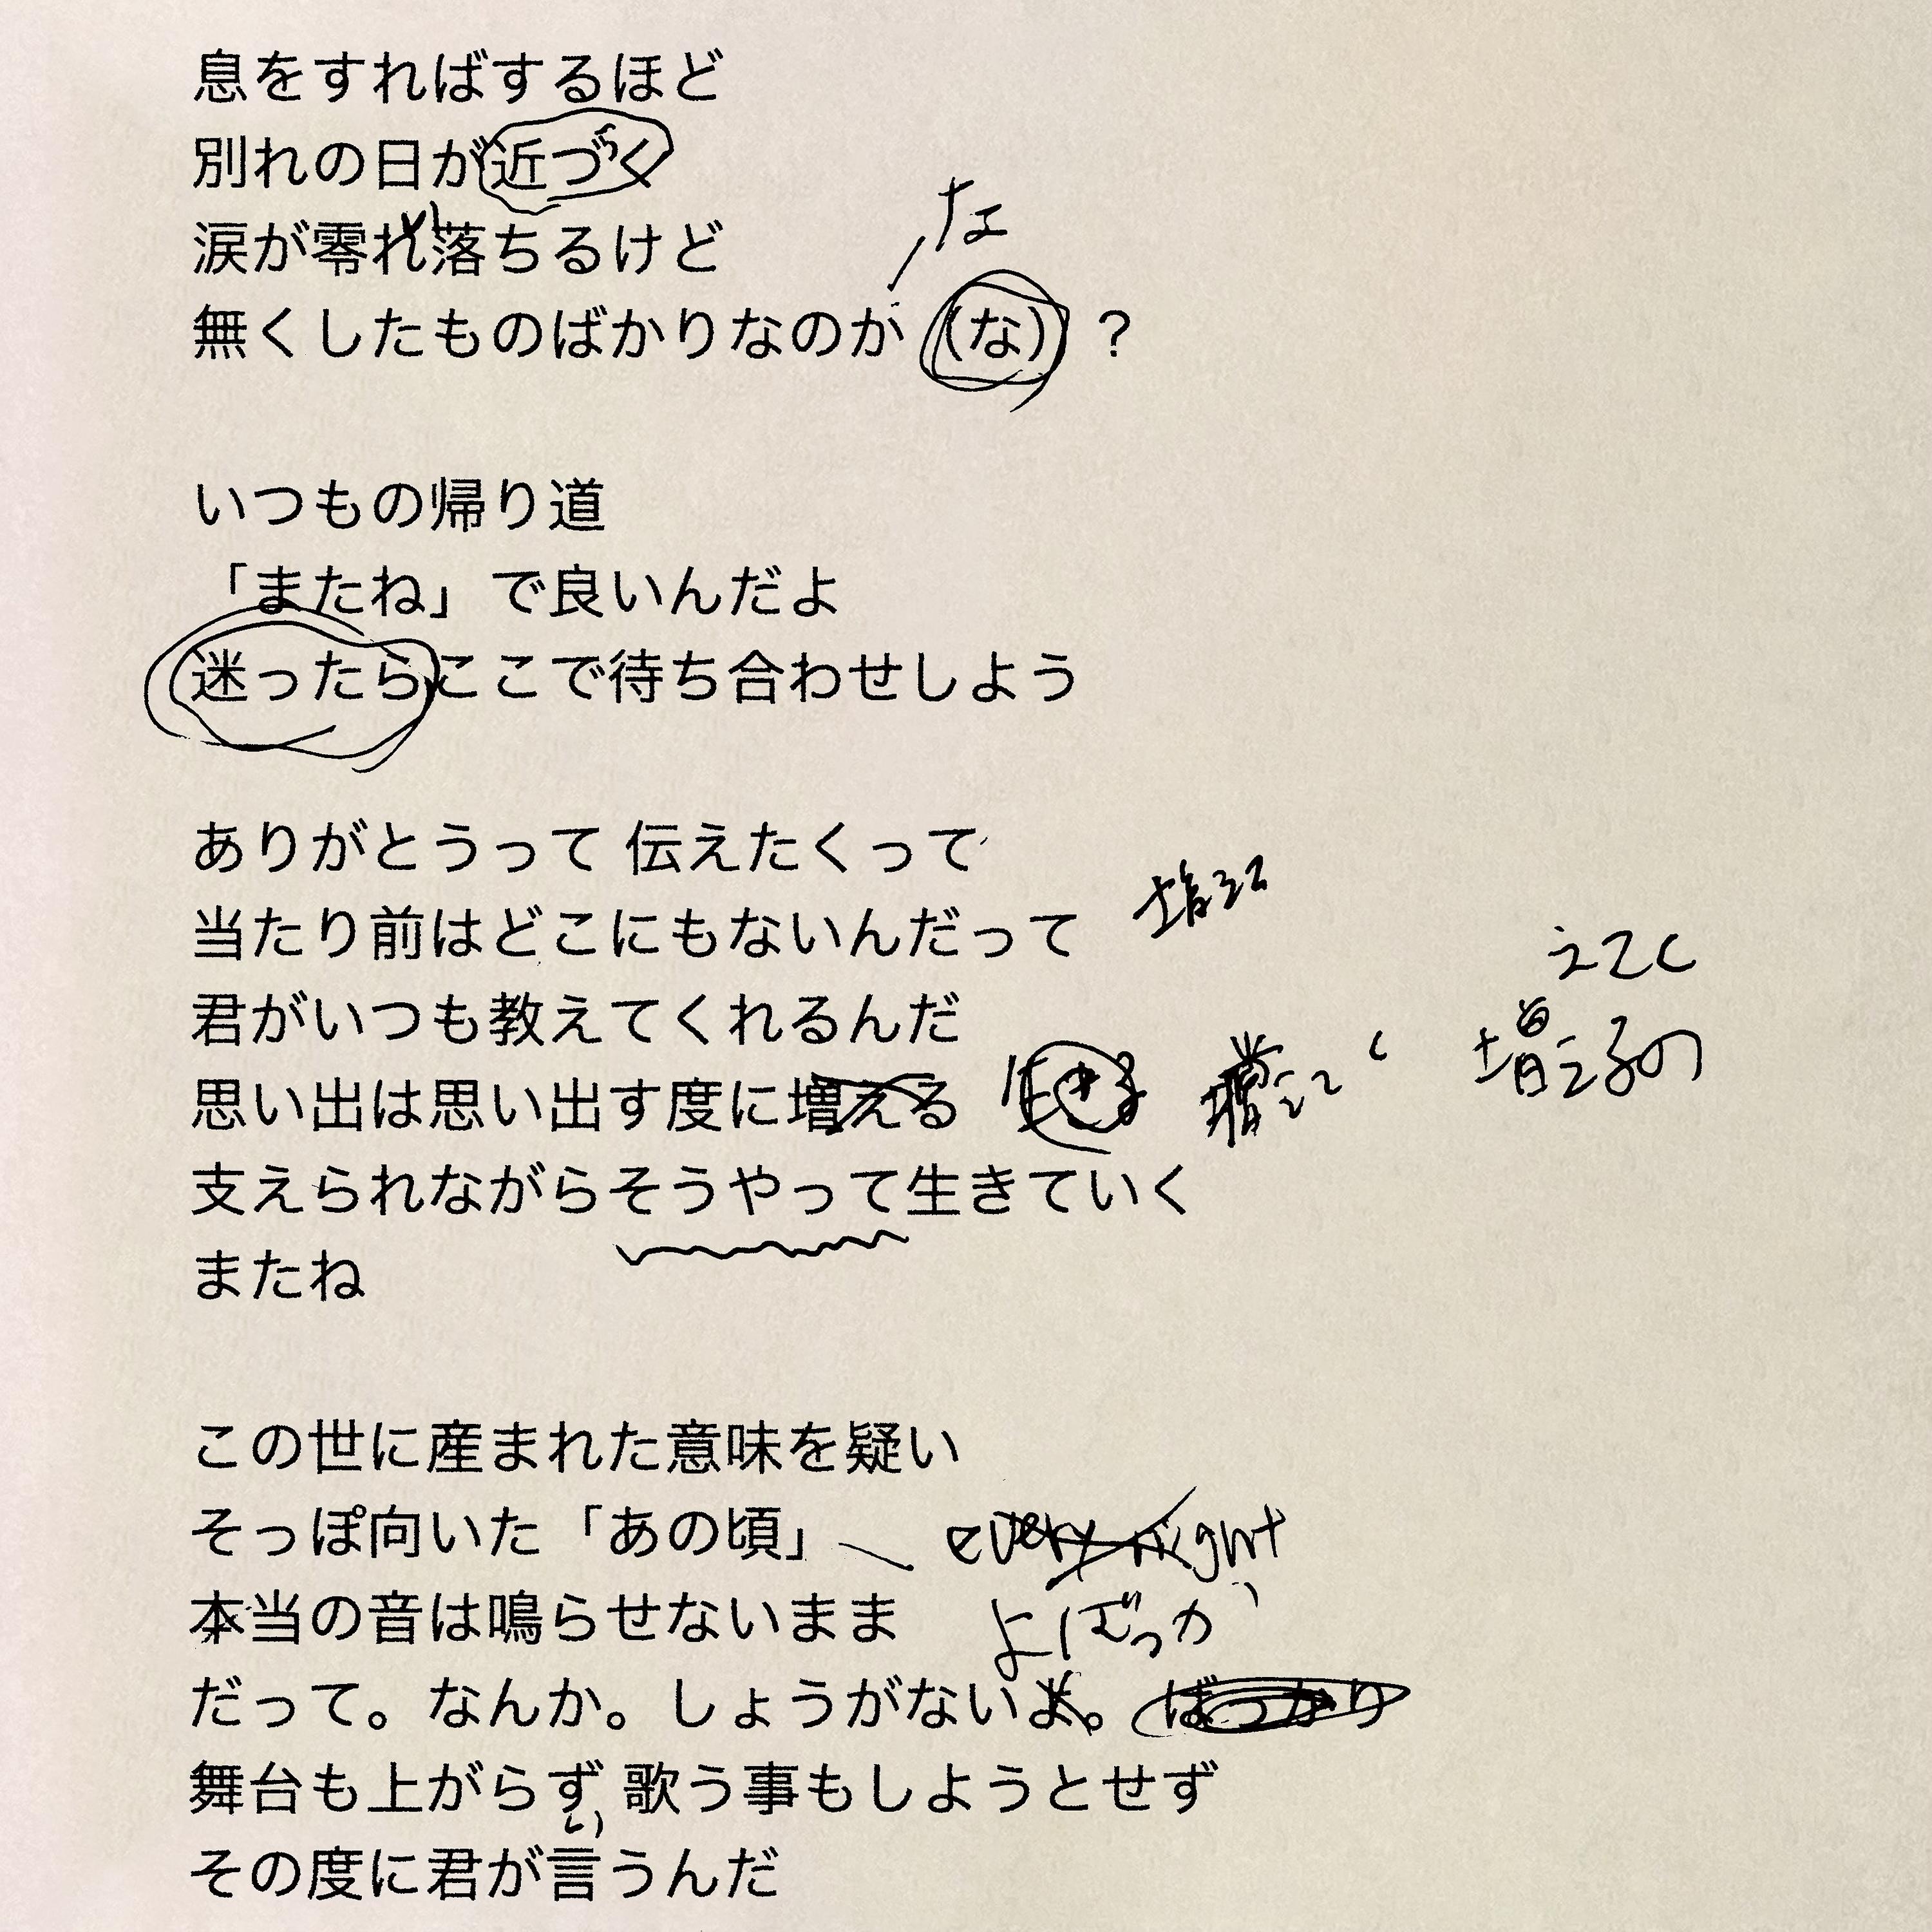 息をすればするほど
別れの日が近づく
涙が零れ落ちるけど
な
無くしたものばかりなのか (な) ?
いつもの帰り道
「またね」で良いんだよ
迷ったらここで待ち合わせしよう
ありがとうって 伝えたくって
当たり前はどこにもないんだって
君がいつも教えてくれるんだ
思い出は思い出す度に増える 増えるの
支えられながらそうやって生きていく
またね
この世に産まれた意味を疑い
そっぽ向いた「あの頃」 every night
本当の音は鳴らせないまま よばっか
だって。なんか。しょうがないよ。 ばっかり
舞台も上がらず 歌う事もしようとせず
い
その度に君が言うんだ